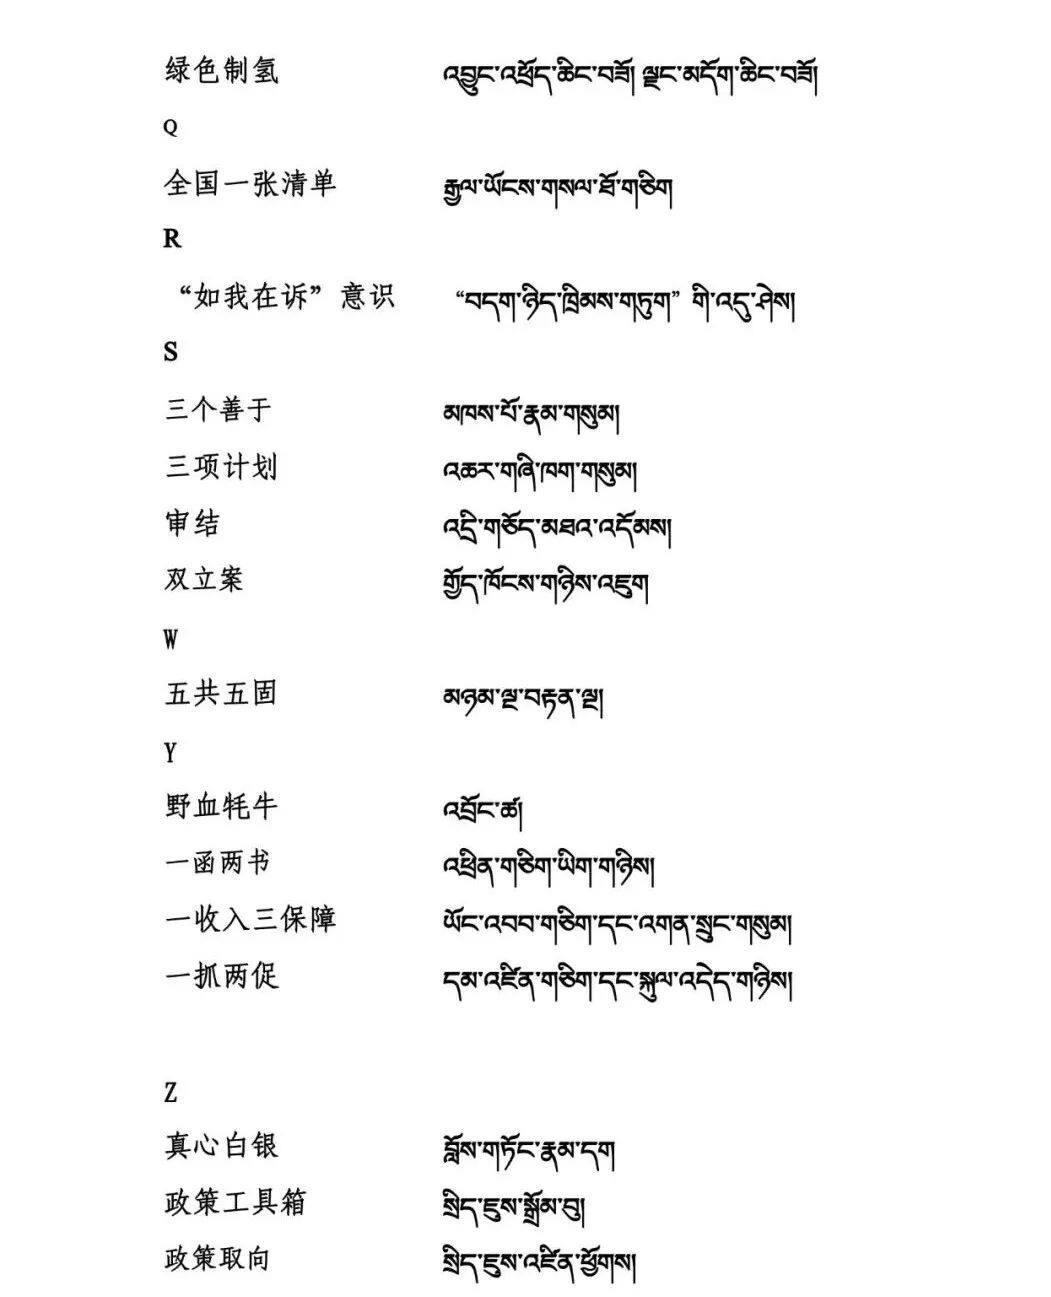 绿色制氢 འབྱུང་འཕྲོད་ཆིང་བཟོ། ལྗང་མདོག་ཆིང་བཟོ།
Q
全国一张清单 རྒྱལ་ཡོངས་གསལ་ཐོ་གཅིག
R
“如我在诉”意识 “བདག་ཉིད་ཁྲིམས་གཏུག”གི་འདུ་ཤེས།
S
三个善于 མཁས་པོ་རྣམ་གསུམ།
三项计划 འཆར་གཞི་ཁག་གསུམ།
审结 འདྲི་གཅོད་མཐའ་འདོམས།
双立案 གྱོད་ཁོངས་གཉིས་འཇུག
W
五共五固 མཉམ་ལྔ་བརྟན་ལྔ།
Y
野血牦牛 འབྲོང་ཚ།
一函两书 འཕྲིན་གཅིག་ཡིག་གཉིས།
一收入三保障 ཡོང་འབབ་གཅིག་དང་འགན་སྲུང་གསུམ།
一抓两促 དམ་འཛིན་གཅིག་དང་སྐུལ་འདེད་གཉིས།
Z
真心白银 བློས་གཏོང་རྣམ་དག
政策工具箱 སྲིད་ཇུས་སྒྲོམ་བུ།
政策取向 སྲིད་ཇུས་འཛིན་ཕྱོགས།